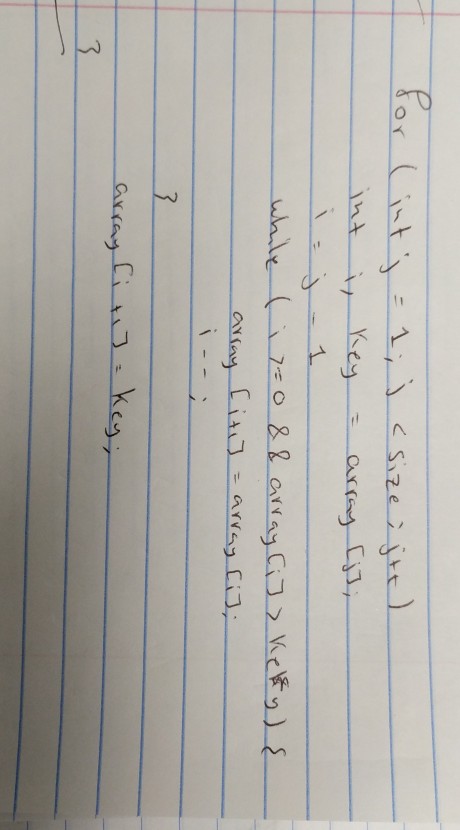 for ( int j = 1; j < size; j++ )
int i, key = array [j];
i = j - 1
while ( i >= 0 && array[i] > key ) {
array [i+1] = array [i];
i--;
}
array [i+1] = key;
}